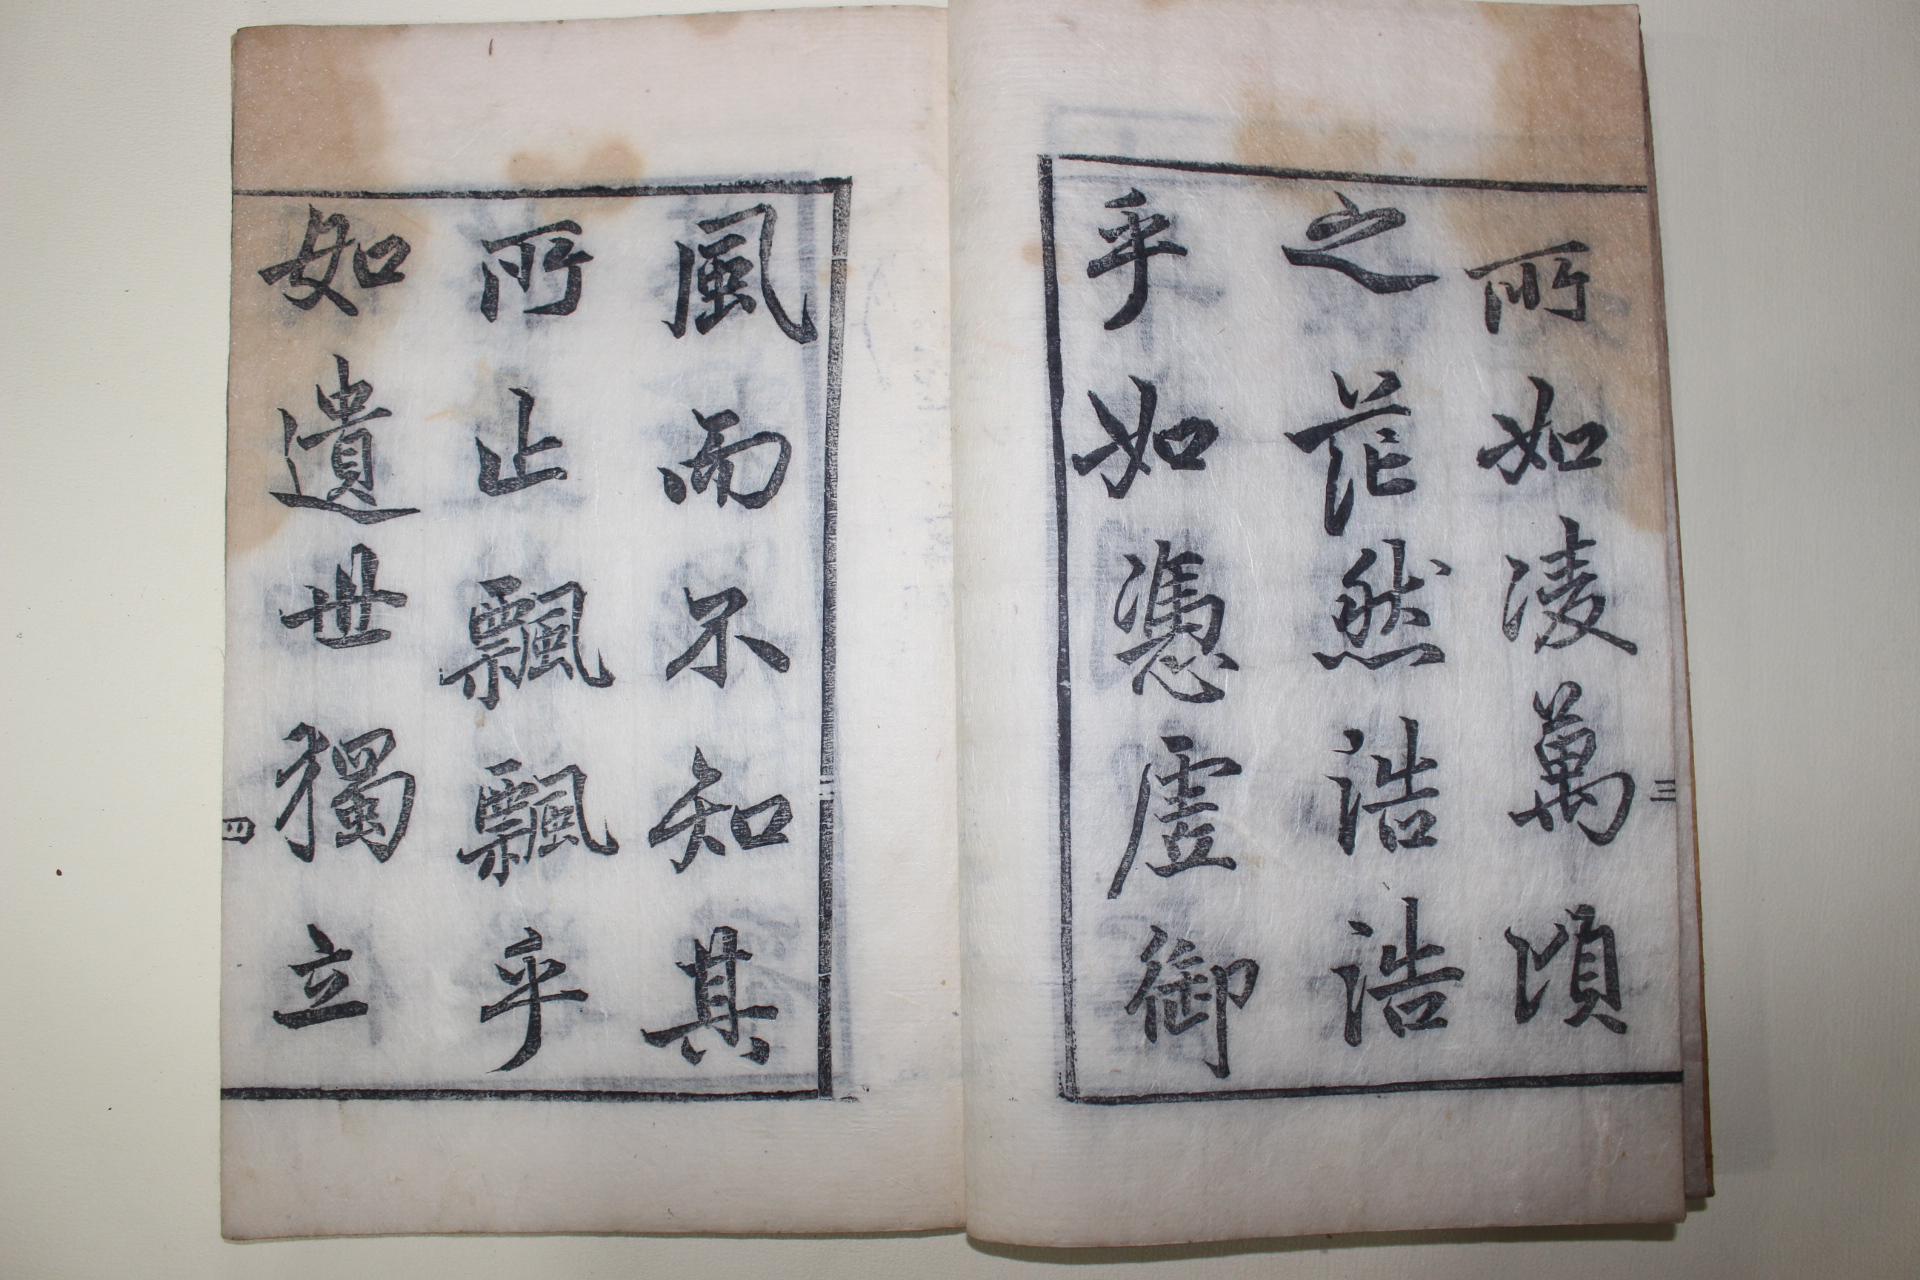 所如凌萬頃
之茫然浩浩
乎如憑虛御
三
風而不知其
所止飄飄乎
如遺世獨立
四